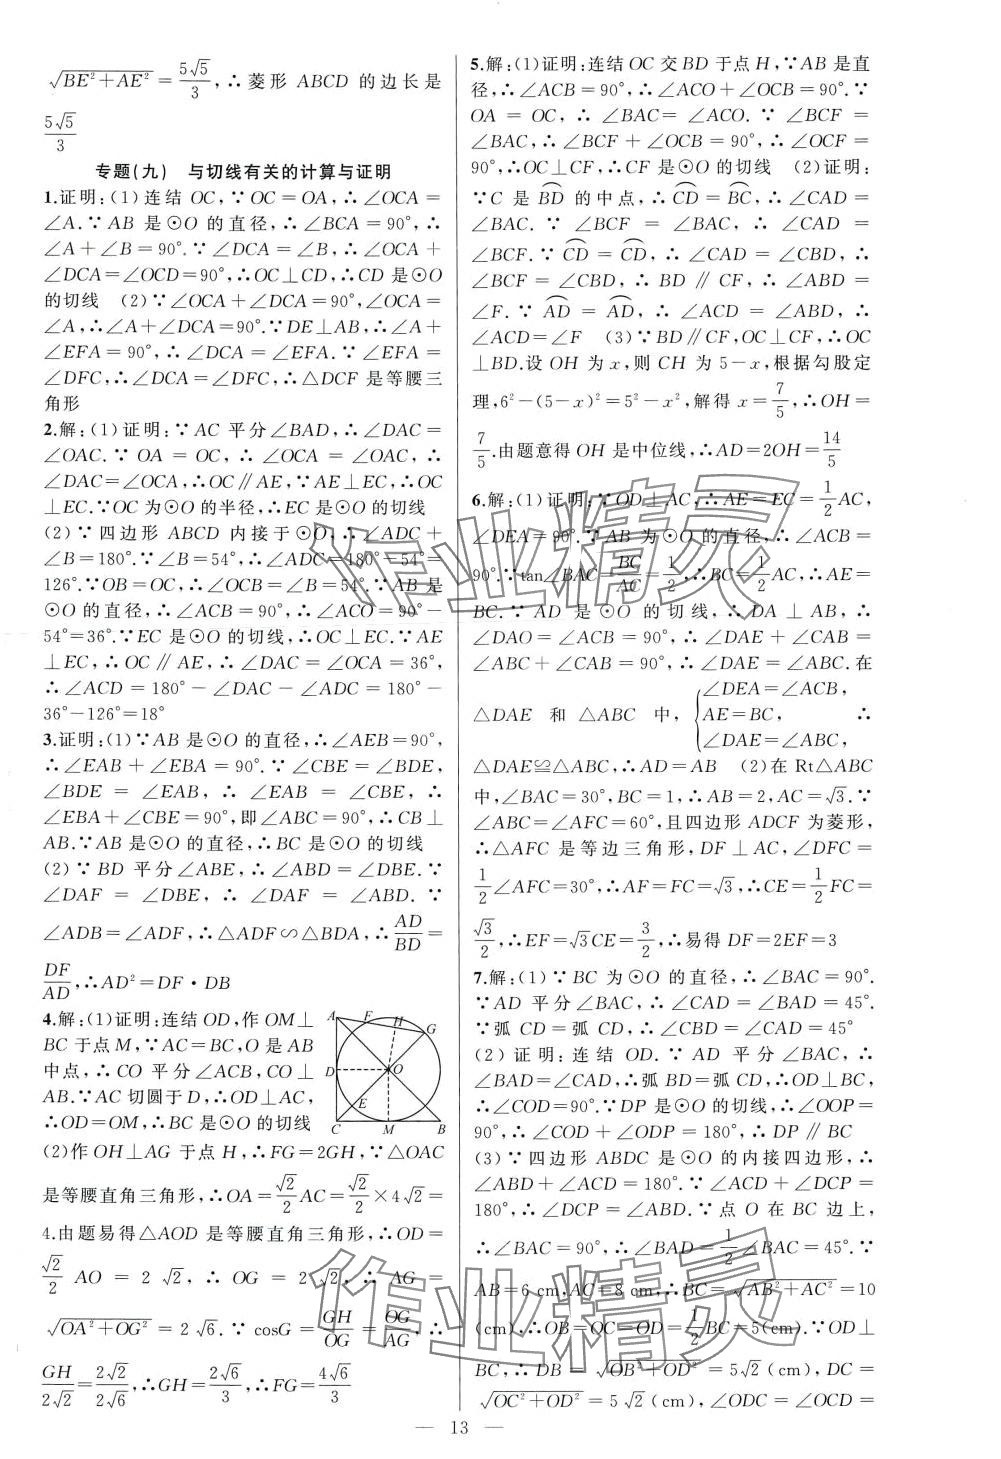 √(BE²+AE²) = 5√5/3, ∴菱形 ABCD 的边长是
5√5/3
专题(九)　与切线有关的计算与证明
1.证明:(1)连结 OC,∵OC=OA,∴∠OCA=
∠A.∵AB 是⊙O 的直径,∴∠BCA=90°.∴
∠A+∠B=90°.∵∠DCA=∠B,∴∠OCA+
∠DCA=∠OCD=90°,∴OC⊥CD,∴CD 是⊙O
的切线　(2)∵∠OCA+∠DCA=90°,∠OCA=
∠A,∴∠A+∠DCA=90°.∵DE⊥AB,∴∠A+
∠EFA=90°,∴∠DCA=∠EFA.∵∠EFA=
∠DFC,∴∠DCA=∠DFC,∴△DCF 是等腰三
角形
2.解:(1)证明:∵AC 平分∠BAD,∴∠DAC=
∠OAC.∵OA=OC,∴∠OCA=∠OAC,∴
∠DAC=∠OCA,∴OC∥AE,∵AE⊥EC,∴OC
⊥EC.∵OC 为⊙O 的半径,∴EC 是⊙O 的切线
(2)∵四边形 ABCD 内接于⊙O,∴∠ADC+
∠B=180°.∵∠B=54°,∴∠ADC=180°-54°=
126°.∵OB=OC,∴∠OCB=∠B=54°.∵AB 是
⊙O 的直径,∴∠ACB=90°,∴∠ACO=90°-
54°=36°.∵EC 是⊙O 的切线,∴OC⊥EC.∵AE
⊥EC,∴OC∥AE,∴∠DAC=∠OCA=36°,
∴∠ACD=180°-∠DAC-∠ADC=180°-
36°-126°=18°
3.证明:(1)∵AB 是⊙O 的直径,∴∠AEB=90°,
∴∠EAB+∠EBA=90°.∵∠CBE=∠BDE,
∠BDE=∠EAB,∴∠EAB=∠CBE,∴
∠EBA+∠CBE=90°,即∠ABC=90°,∴CB⊥
AB.∵AB 是⊙O 的直径,∴BC 是⊙O 的切线
(2)∵BD 平分∠ABE,∴∠ABD=∠DBE.∵
∠DAF=∠DBE,∴∠DAF=∠ABD.∵
∠ADB=∠ADF,∴△ADF∽△BDA,∴AD/BD=
DF/AD,∴AD²=DF·DB
4.解:(1)证明:连结 OD,作 OM⊥
BC 于点 M,∵AC=BC,O 是 AB
中点,∴CO 平分∠ACB,CO⊥
AB.∵AC 切圆于 D,∴OD⊥AC,
∴OD=OM,∴BC 是⊙O 的切线
A F H G D O E C M B
(2)作 OH⊥AG 于点 H,∴FG=2GH,∵△OAC
是等腰直角三角形,∴OA=√2/2AC=√2/2×4√2=
4.由题易得△AOD 是等腰直角三角形,∴OD=
√2/2 AO=2√2,∴OG=2√2,∴AG=
√(OA²+OG²)=2√6.∵cosG=GH/OG=OG/AG,∴
GH/2√2=2√2/2√6,∴GH=2√6/3,∴FG=4√6/3
5.解:(1)证明:连结 OC 交 BD 于点 H,∵AB 是直
径,∴∠ACB=90°,∴∠ACO+∠OCB=90°.∵
OA=OC,∴∠BAC=∠ACO.∵∠BCF=
∠BAC,∴∠BCF+∠OCB=90°,∴∠OCF=
90°,∴OC⊥CF,∴CF 是⊙O 的切线　(2)证明:
∵C 是 BD⌒ 的中点,∴CD⌒=BC⌒,∴∠CAD=
∠BAC.∵∠BCF=∠BAC,∴∠CAD=
∠BCF.∵CD⌒=CD⌒,∴∠CAD=∠CBD,∴
∠BCF=∠CBD,∴BD∥CF,∴∠ABD=
∠F.∵AD⌒=AD⌒,∴∠ACD=∠ABD,∴
∠ACD=∠F　(3)∵BD∥CF,OC⊥CF,∴OC
⊥BD.设 OH 为 x,则 CH 为 5-x,根据勾股定
理,6²-(5-x)²=5²-x²,解得 x=7/5,∴OH=
7/5.由题意得 OH 是中位线,∴AD=2OH=14/5
6.解:(1)证明:∵OD⊥AC,∴AE=EC=1/2AC,
∠DEA=90°.∵AB 为⊙O 的直径,∴∠ACB=
90°.∵tan∠BAC=BC/AC=1/2,∴BC=1/2AC,∴AE=
BC.∵AD 是⊙O 的切线,∴DA⊥AB,∴
∠DAO=∠ACB=90°,∴∠DAE+∠CAB=
∠ABC+∠CAB=90°,∴∠DAE=∠ABC.在
△DAE 和△ABC 中,{∠DEA=∠ACB,
AE=BC,
∠DAE=∠ABC, ∴
△DAE≌△ABC,∴AD=AB　(2)在 Rt△ABC
中,∠BAC=30°,BC=1,∴AB=2,AC=√3.∵
∠ABC=∠AFC=60°,且四边形 ADCF 为菱形,
∴△AFC 是等边三角形,DF⊥AC,∠DFC=
1/2∠AFC=30°,∴AF=FC=√3,∴CE=1/2FC=
√3/2,∴EF=√3CE=3/2,∴易得 DF=2EF=3
7.解:(1)∵BC 为⊙O 的直径,∴∠BAC=90°.
∵AD 平分∠BAC,∴∠CAD=∠BAD=45°.
∵弧 CD=弧 CD,∴∠CBD=∠CAD=45°
(2)证明:连结 OD.∵AD 平分∠BAC,∴
∠BAD=∠CAD,∴弧 BD=弧 CD,∴OD⊥BC,
∴∠COD=90°.∵DP 是⊙O 的切线,∴∠OOP=
90°,∴∠COD+∠ODP=180°,∴DP∥BC
(3)∵四边形 ABDC 是⊙O 的内接四边形,∴
∠ABD+∠ACD=180°.∵∠ACD+∠DCP=
180°,∴∠DCP=∠ABD.∵点 O 在 BC 边上,
∴∠BAC=90°,∴∠BAD=1/2∠BAC=45°.∵
AB=6 cm,AC=8 cm,∴BC=√(AB²+AC²)=10
(cm),∴OB=OC=OD=1/2BC=5(cm).∵OD⊥
BC,∴DB=√(OB²+OD²)=5√2(cm),DC=
√(OC²+OD²)=5√2(cm),∠ODC=∠OCD=
— 13 —
作业精灵
作业精灵